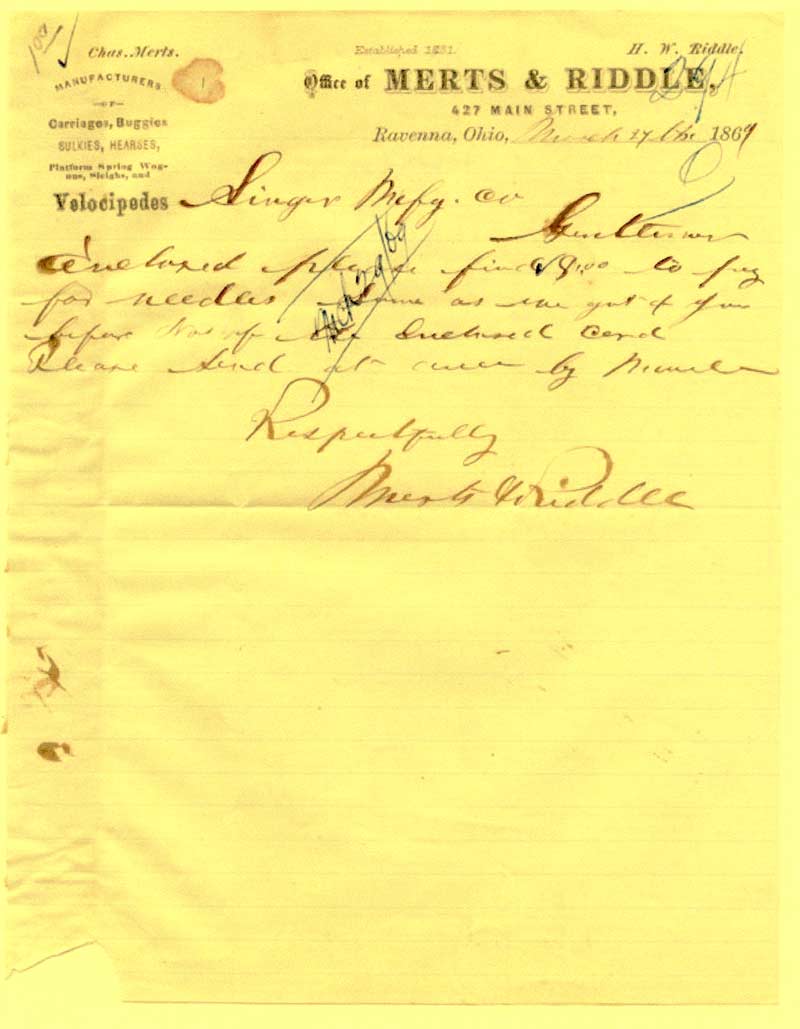 Chas. Merts.
Established 1831.
H. W. Riddle.
MANUFACTURERS
OF
Carriages, Buggies
SULKIES, HEARSES,
Platform Spring Wag-
ons, Sleighs, and
Velocipedes
Office of MERTS & RIDDLE,
427 MAIN STREET,
Ravenna, Ohio, March 27th 1869
Singer Mfg. Co
Gentlemen
Enclosed please find $1.00 to pay
for needles same as we got of you
before No of the Enclosed Card
Please Send at once by
Respectfully
Merts & Riddle